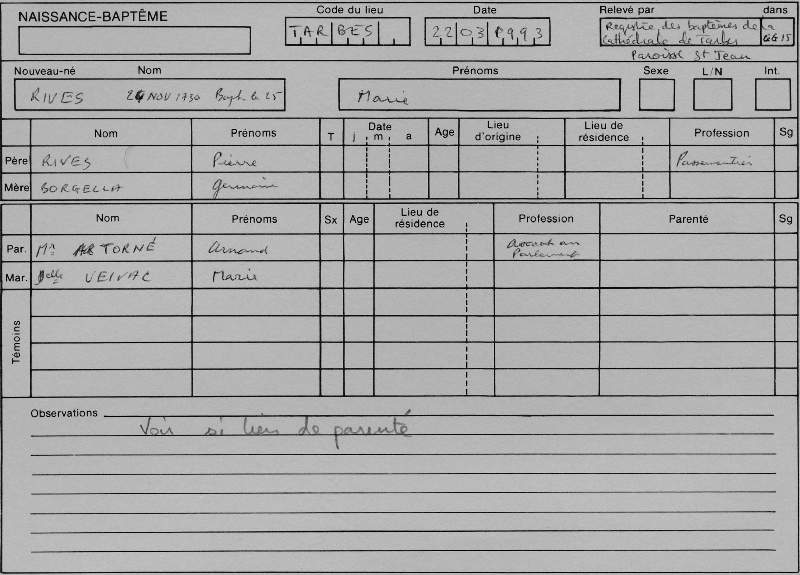 NAISSANCE-BAPTÊME
Code du lieu
TARBES
Date
22 03 1993
Relevé par dans
Registre des baptêmes de la
Cathédrale de Tarbes GG 15
Paroisse St Jean
Nouveau-né Nom Prénoms Sexe L/N Int.
RIVES 24 NOV 1730 Bapt. le 25 Marie
Nom Prénoms T j Date m a Age Lieu d'origine Lieu de résidence Profession Sg
Père RIVES Pierre Passementier
Mère BORGELLA Germaine
Nom Prénoms Sx Age Lieu de résidence Profession Parenté Sg
Par. Me TORNÉ Arnaud Avocat au Parlement
Mar. Delle VEIVAC Marie
Témoins
Observations
Voir si lien de parenté